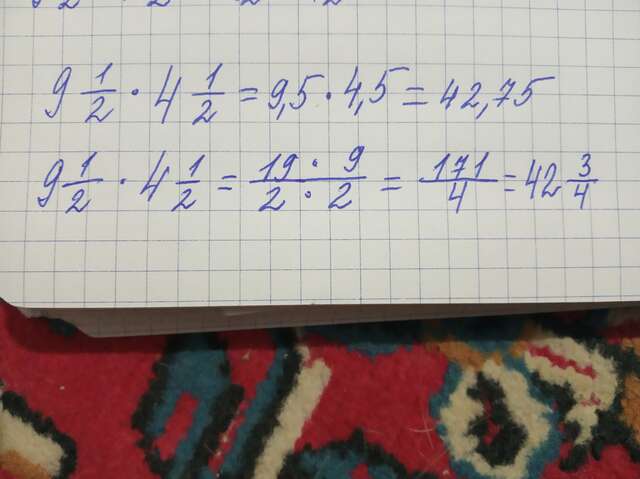 9 1/2 · 4 1/2 = 9,5 · 4,5 = 42,75
9 1/2 · 4 1/2 = 19 · 9 / 2 · 2 = 171/4 = 42 3/4